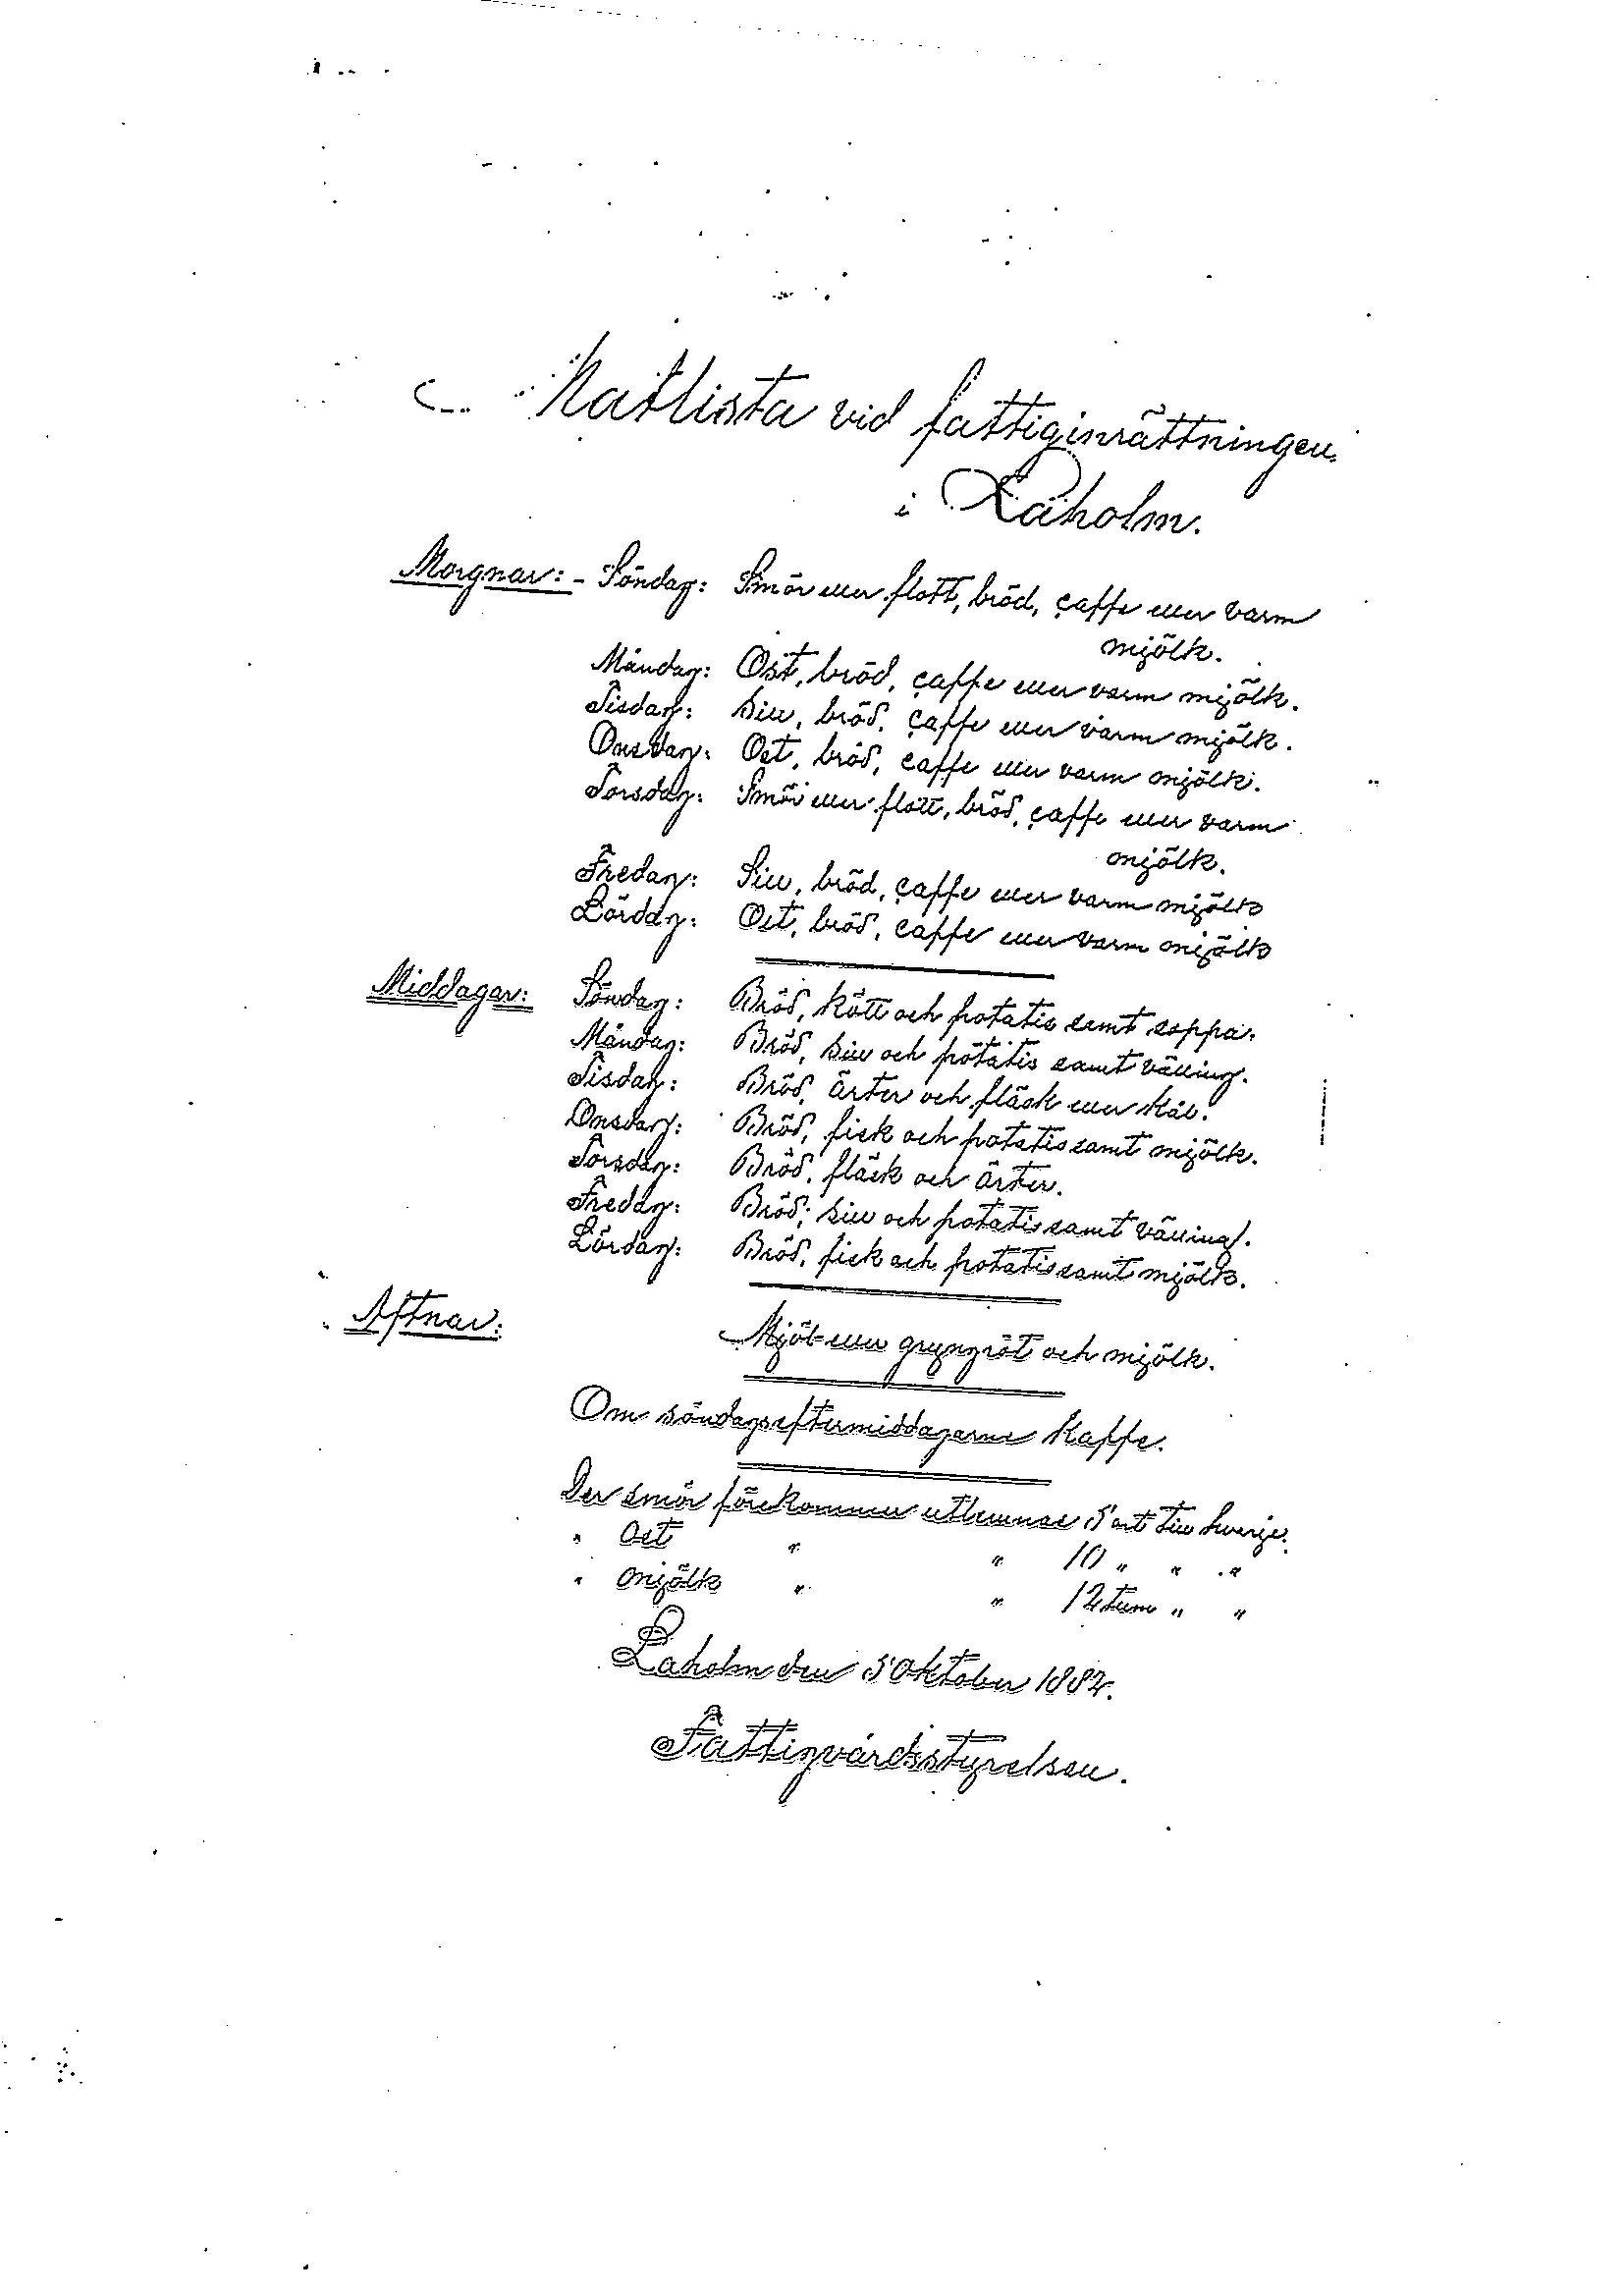 Matlista vid fattiginrättningen
i Laholm.
Morgnar: - Söndag: Smör eller flott, bröd, caffe eller varm
mjölk.
Måndag: Ost, bröd, caffe eller varm mjölk.
Tisdag: Sill, bröd, caffe eller varm mjölk.
Onsdag: Ost, bröd, caffe eller varm mjölk.
Torsdag: Smör eller flott, bröd, caffe eller varm
mjölk.
Fredag: Sill, bröd, caffe eller varm mjölk
Lördag: Ost, bröd, caffe eller varm mjölk
Middagar: Söndag: Bröd, kött och potatis samt soppa.
Måndag: Bröd, sill och potatis samt välling.
Tisdag: Bröd, ärter och fläsk eller kål.
Onsdag: Bröd, fisk och potatis samt mjölk.
Torsdag: Bröd, fläsk och ärter.
Fredag: Bröd, sill och potatis samt välling.
Lördag: Bröd, fisk och potatis samt mjölk.
Aftnar: Mjöl- eller gryngröt och mjölk.
Om söndagseftermiddagarne kaffe.
Der smör förekommer utlemnas 5 ort till hvarje.
" Ost " " 10 " " "
" mjölk " " 12 tum " "
Laholm den 5 Oktober 1882.
Fattigvårdsstyrelsen.